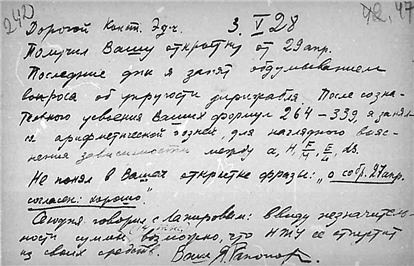 242) Дорогой Конст. Эд-ч. 3. V 28 42. 47
Получил Вашу открытку от 29 апр.
Последние дни я занят обдумыванием
вопроса об упругости дирижабля. После созна-
тельного усвоения Ваших формул 264–339, я занял-
ся арифметической возней, для наглядного выяс-
нения зависимости между a, H,
Не понял в Вашей открытке фразы: "о собр. 27 апр.
согласен: хорошо."
Сегодня говорил с Лапировым: ввиду незначитель-
ности суммы, возможно, что НТУ ее
из своих средств. Ваш Я. Рапопорт